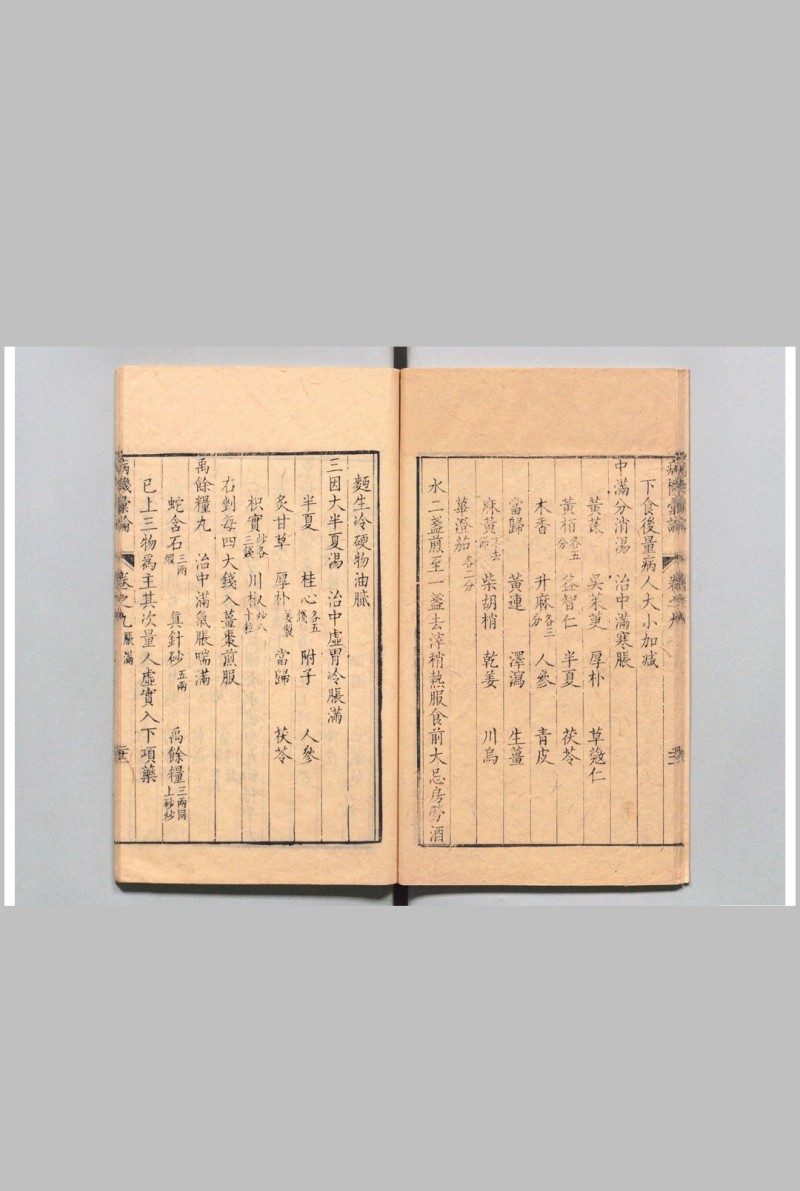 下食後量病人大小加減
中滿分消湯　治中滿寒脹
黃茋　吳茱萸　厚朴　草荳仁
黃栢各五分　益智仁　半夏　茯苓
木香　升麻各三分　人參　青皮
當歸　黃連　澤瀉　生薑
麻黃去節　柴胡梢　乾姜　川烏
蓽澄茄各二分
水二盞煎至一盞去滓稍熱服食前大忌房勞酒
麵生冷硬物油膩
三因大半夏湯　治中虛胃冷脹滿
半夏　桂心各五錢　附子　人參
炙甘草　厚朴姜製　當歸　茯苓
枳實炒各三錢　川椒炒八十粒
右剉每四大錢入薑棗煎服
禹餘糧丸　治中滿氣脹喘滿
蛇含石三兩煆　真針砂五兩　禹餘糧三兩同上砂炒
已上三物爲主其次量人虛實入下項藥
病機彙論　卷之九　脹滿